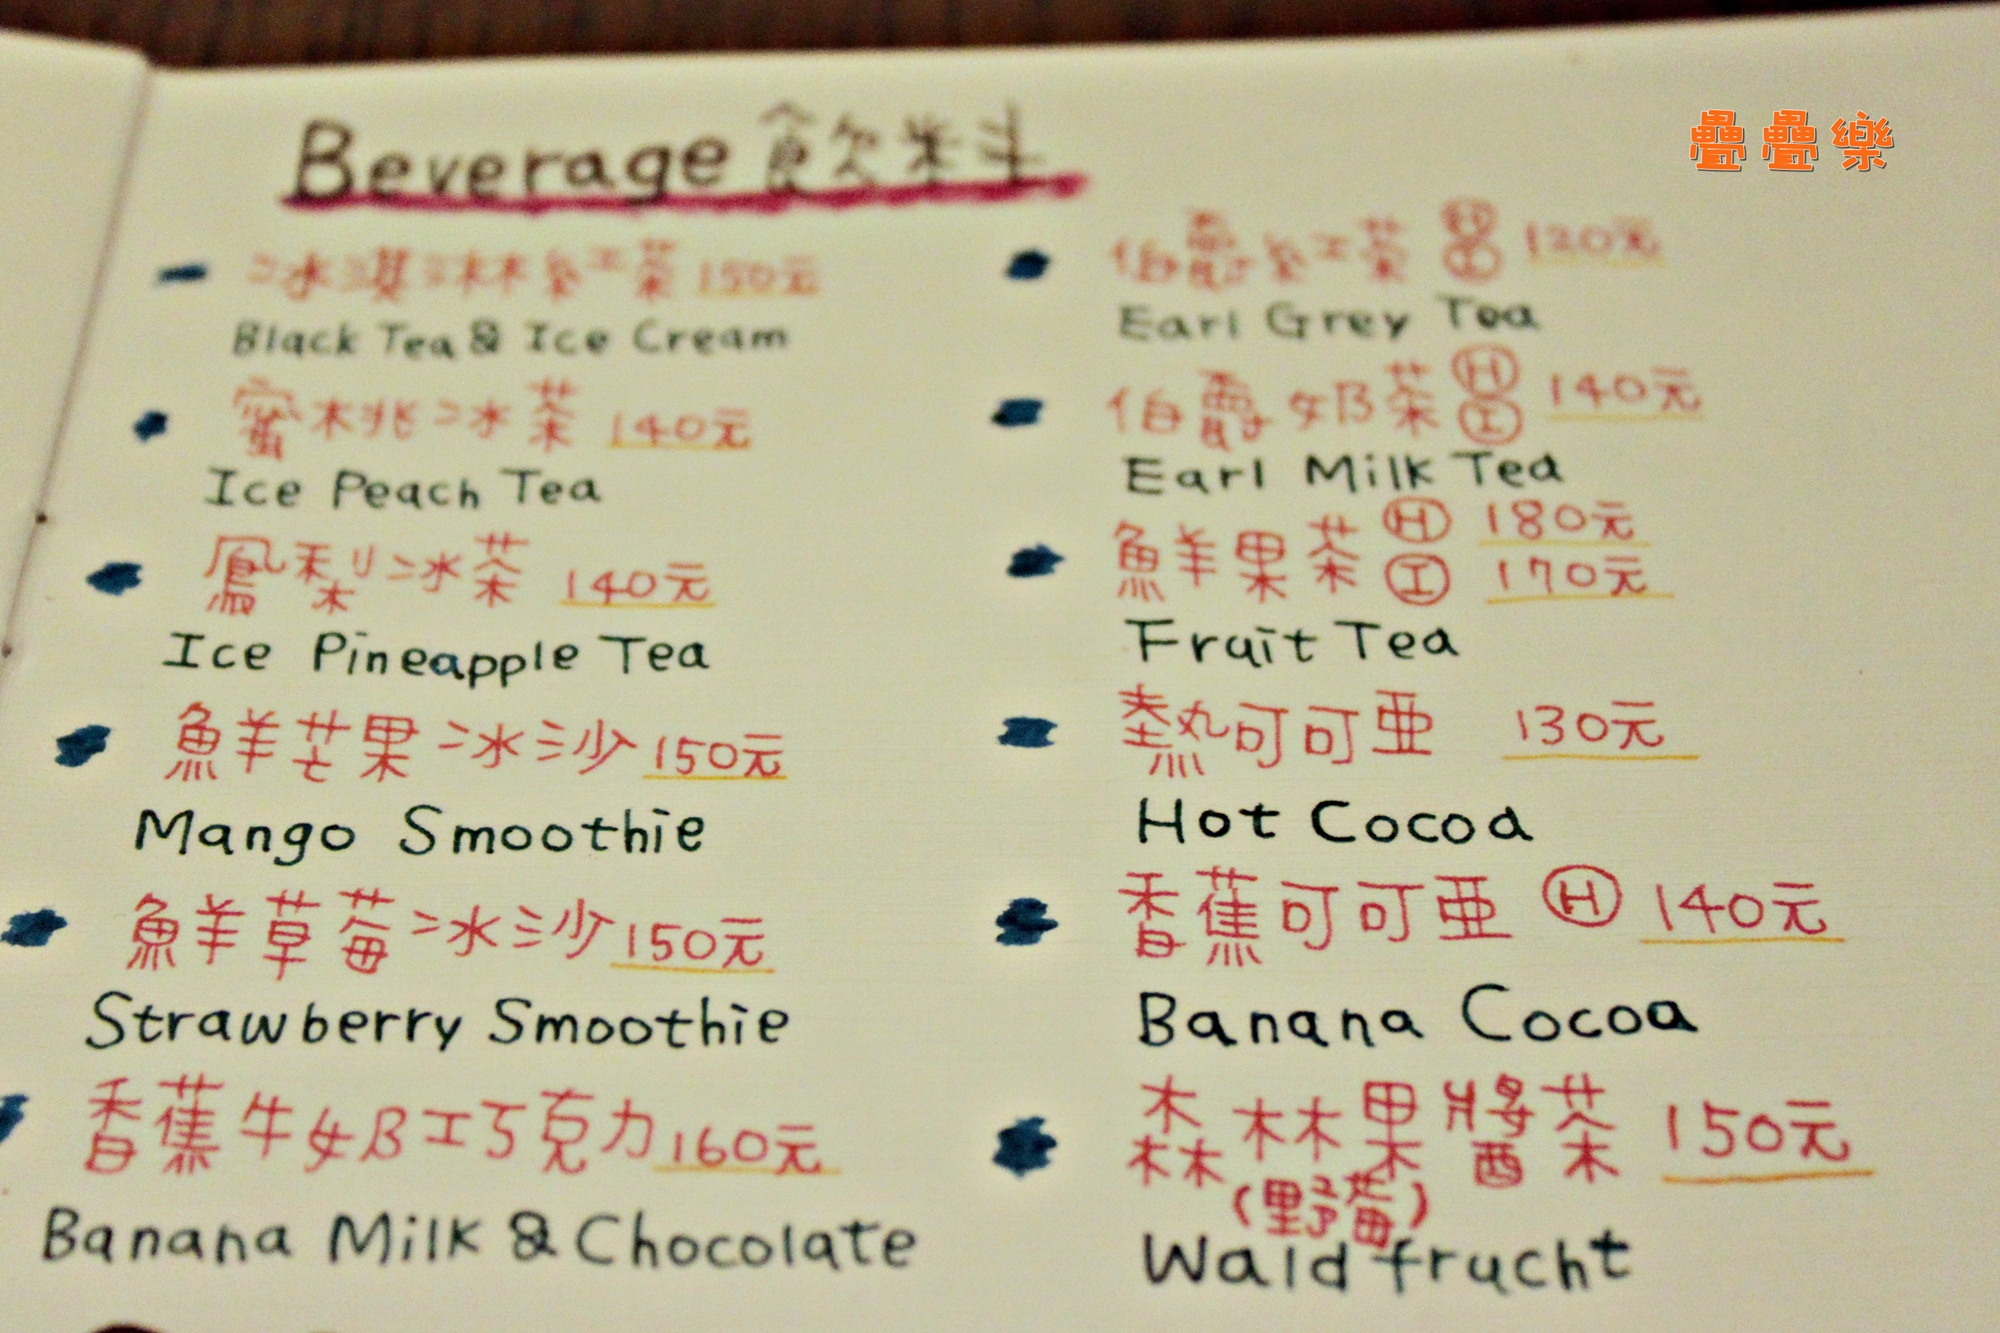 Beverage 飲料
疊疊樂
冰淇淋紅茶 150元
Black Tea & Ice Cream
蜜桃冰茶 140元
Ice Peach Tea
鳳梨冰茶 140元
Ice Pineapple Tea
鮮芒果冰沙 150元
Mango Smoothie
鮮草莓冰沙 150元
Strawberry Smoothie
香蕉牛奶巧克力 160元
Banana Milk & Chocolate
伯爵紅茶 Ⓗ Ⓘ 120元
Earl Grey Tea
伯爵奶茶 Ⓗ Ⓘ 140元
Earl Milk Tea
鮮果茶 Ⓗ 180元
Ⓘ 170元
Fruit Tea
熱可可亜 130元
Hot Cocoa
香蕉可可亜 Ⓗ 140元
Banana Cocoa
森林果醬茶 150元
(野莓)
Wald frucht